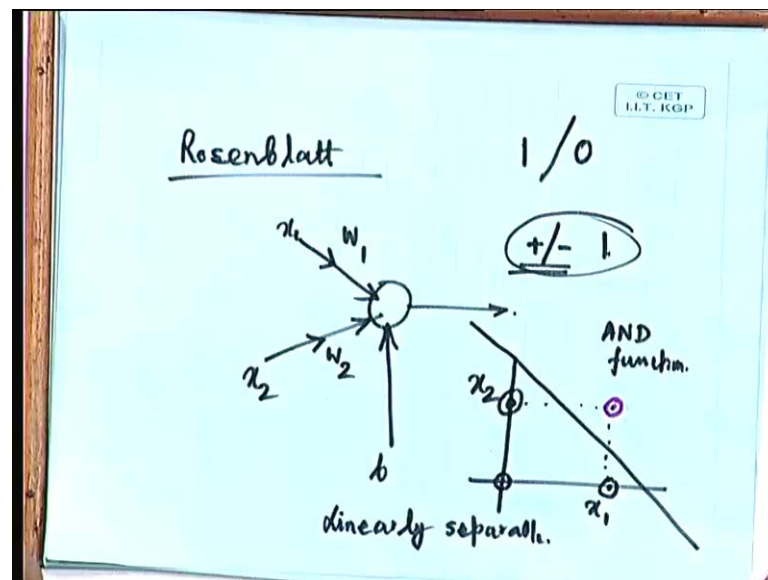 © CET
I.I.T. KGP
Rosenblatt
1/0
+/- 1
x₁
W₁
x₂
W₂
b
AND
function.
x₂
x₁
Linearly separable.